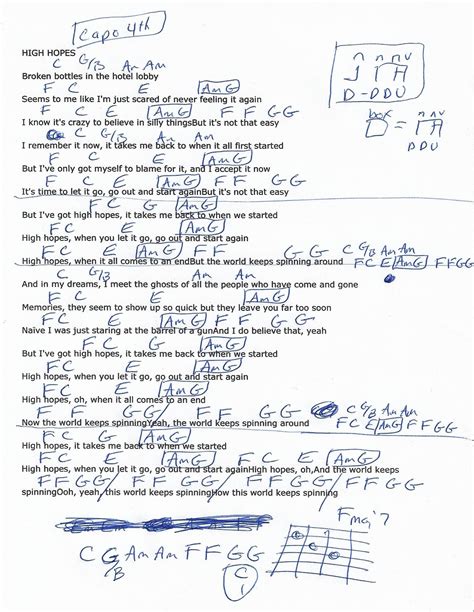 Capo 4th
HIGH HOPES
C G/B Am Am
Broken bottles in the hotel lobby
F C E Am G
Seems to me like I'm just scared of never feeling it again
F C E Am G F F G G
I know it's crazy to believe in silly thingsBut it's not that easy
C G/B Am Am
I remember it now, it takes me back to when it all first started
F C E Am G
But I've only got myself to blame for it, and I accept it now
F C E Am G F F G G
It's time to let it go, go out and start againBut it's not that easy
F C G Am G
But I've got high hopes, it takes me back to when we started
F C E Am G
High hopes, when you let it go, go out and start again
F C E Am G F F G G C G/B Am Am
High hopes, when it all comes to an endBut the world keeps spinning around F C E Am G F F G G
C G/B Am Am
And in my dreams, I meet the ghosts of all the people who have come and gone
F C E Am G
Memories, they seem to show up so quick but they leave you far too soon
F C E Am G F F G G
Naïve I was just staring at the barrel of a gunAnd I do believe that, yeah
F C G Am G
But I've got high hopes, it takes me back to when we started
F C E Am G
High hopes, when you let it go, go out and start again
F C E Am G
High hopes, oh, when it all comes to an end
F F G G F F G G C G/B Am Am
Now the world keeps spinningYeah, the world keeps spinning around F C E Am G F F G G
F C G Am G
High hopes, it takes me back to when we started
F C E Am G F C E Am G
High hopes, when you let it go, go out and start againHigh hopes, oh,And the world keeps
F F G G / F F G G / F F G G / F F G G
spinningOoh, yeah, this world keeps spinningHow this world keeps spinning
C G/B Am Am F F G G
C
1
Fmaj7
D-DDU
box =
DDU